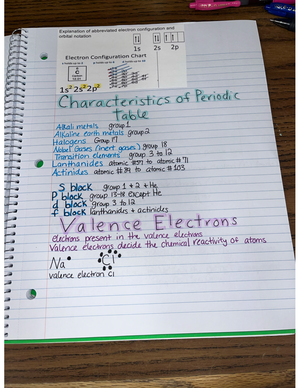 Explanation of abbreviated electron configuration and
orbital notation
1s 2s 2p
Electron Configuration Chart
C
1s² 2s² 2p²
Characteristics of Periodic
Table
Alkali metals group 1
Alkaline earth metals group 2
Halogens Group 17
Nobel Gases (inert gases) group 18
Transition elements group 3 to 12
Lanthanides atomic #57 to atomic #71
Actinides atomic #89 to atomic #103
S block group 1 + 2 + He
P block group 13-18 except He
d block group 3 to 12
f block lanthanides + actinides
Valence Electrons
electrons present in the valence electrons
Valence electrons decide the chemical reactivity of atoms
Na Cl
valence electron Cl